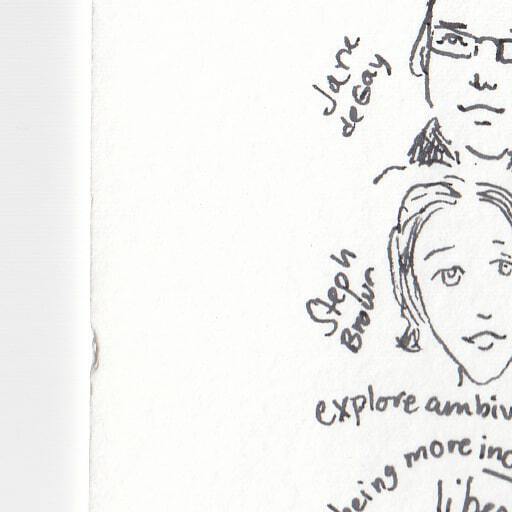 Jane
deGay
Steph
Brown
explore ambiv
being more inc
liber